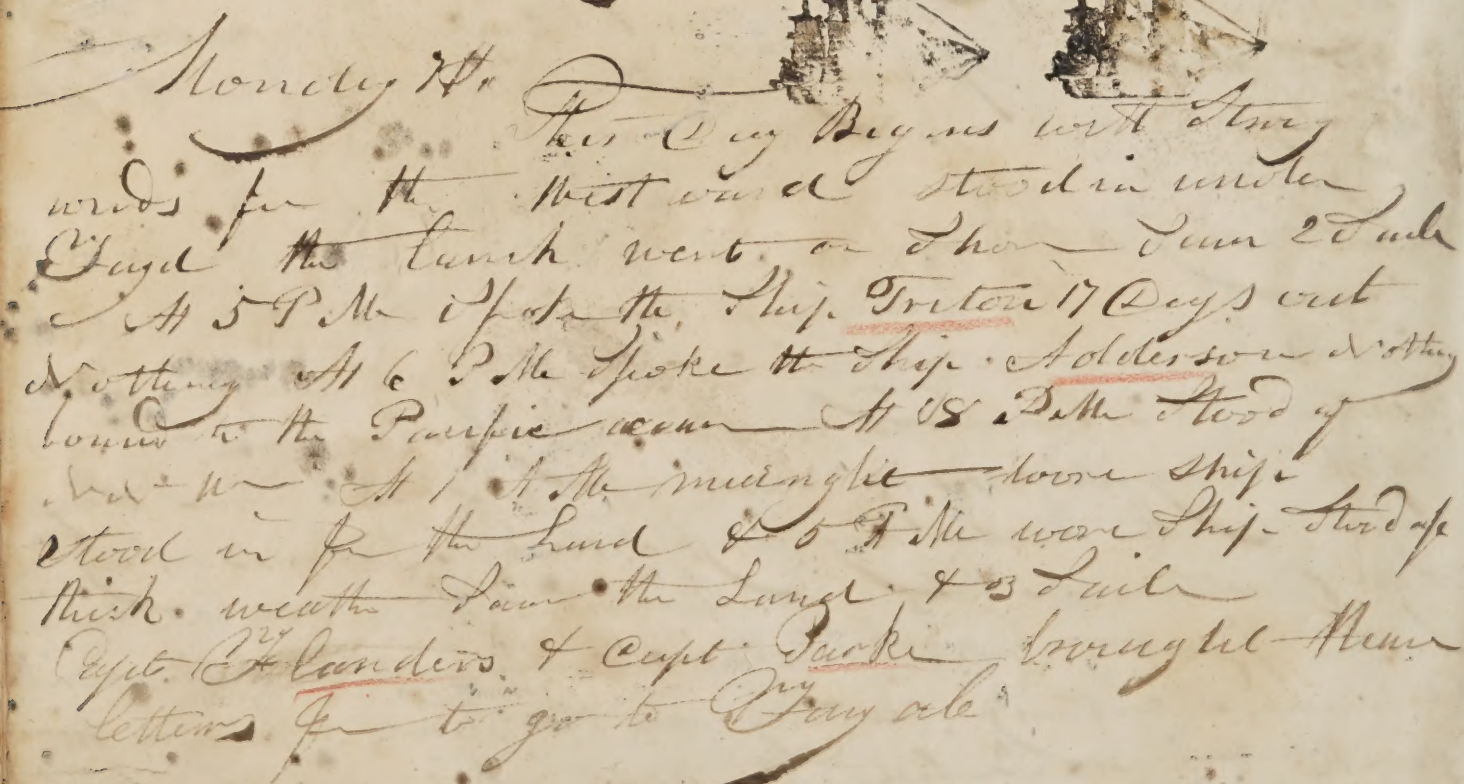 Monday 7th
This Day Begins with Strong
winds for the West ward stood in under
Fayal the lunch went on Shore Saw 2 Sails
At 5 P M Spoke the Ship Triton 17 Days out
Nothing At 6 P M Spoke the Ship Adderson Nothing
bound to the Pacific ocean At 8 P M Stood of
At 1 A M midnight woore ship
stood in for the Land & 5 A M wore Ship Stood of
thick weather Saw the Land & 3 Sails
Capt Flanders & Capt Parke brought their
letters for to go to Fayal